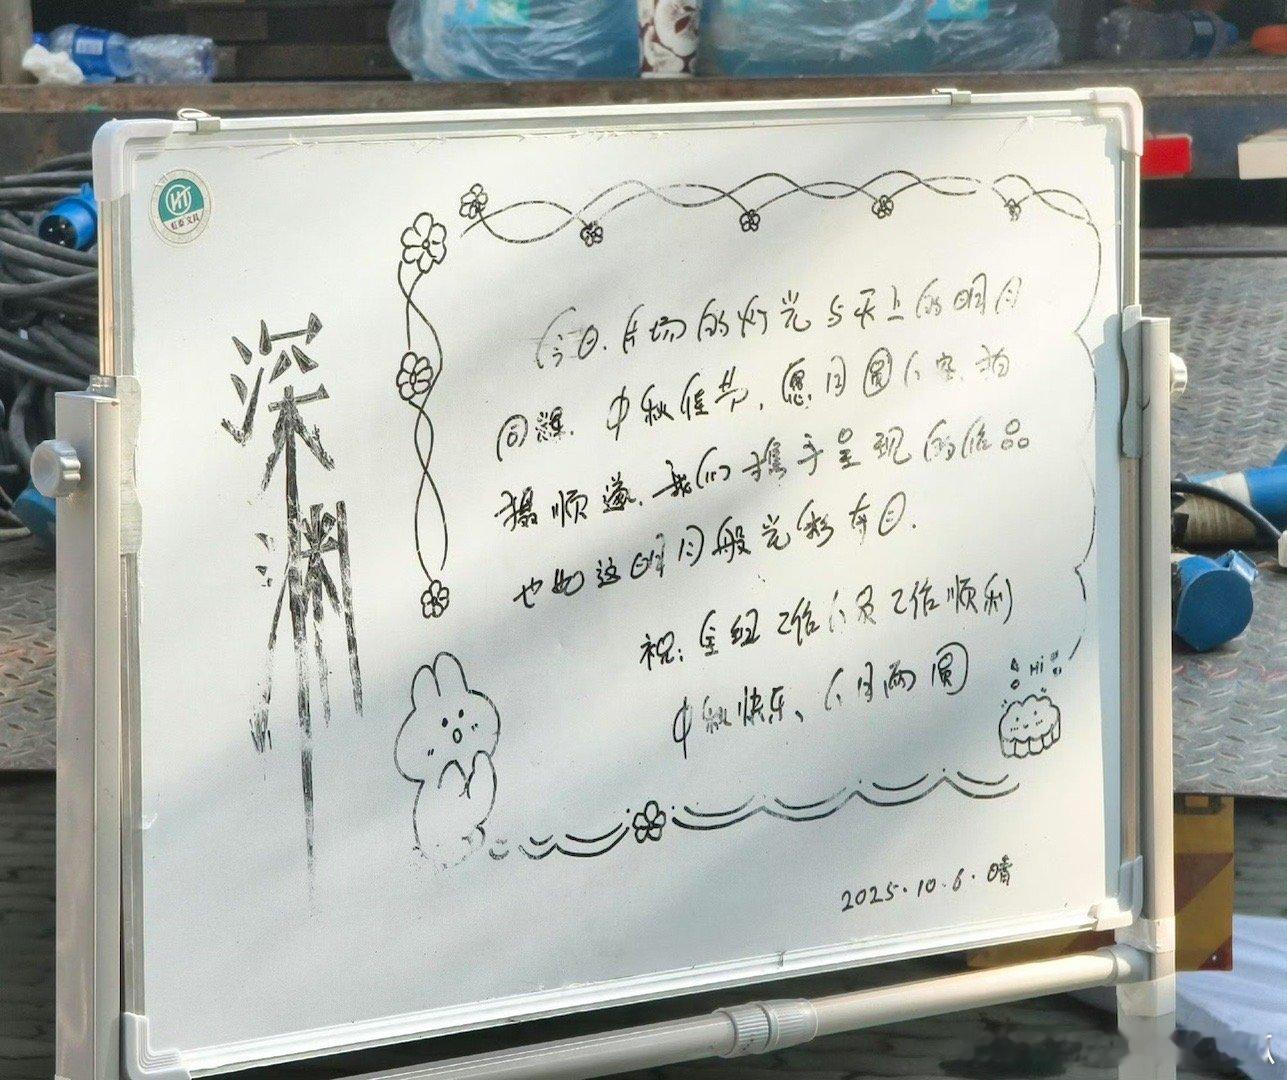 虹泰文具
深渊
今日.片场的灯光与天上的明月
同辉.中秋佳节,愿月圆人安.拍
摄顺遂.我们携手呈现的作品
也如这明月般光彩夺目.
祝:全组工作人员工作顺利
中秋快乐、人月两圆
Hi
2025.10.6.晴